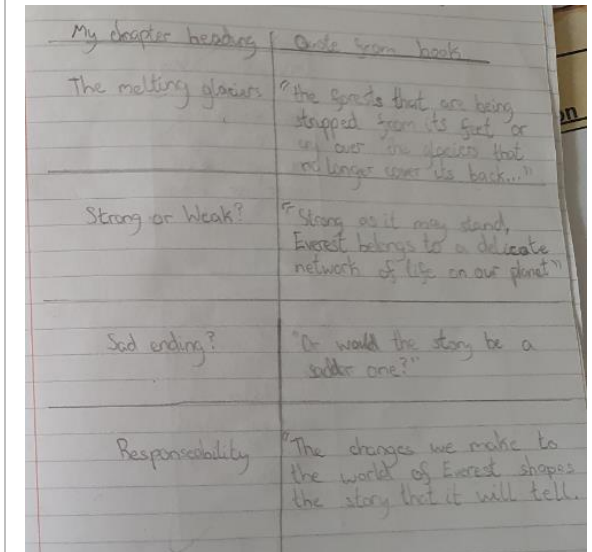 My chapter heading | Quote from book
The melting glaciers "the forests that are being
stripped from its feet or
over the glaciers that
no longer cover its back..."
Strong or Weak? "Strong as it may stand,
Everest belongs to a delicate
network of life on our planet"
Sad ending? "Or would the story be a
sadder one?"
Responscability "The changes we make to
the world of Everest shapes
the story that it will tell.
on